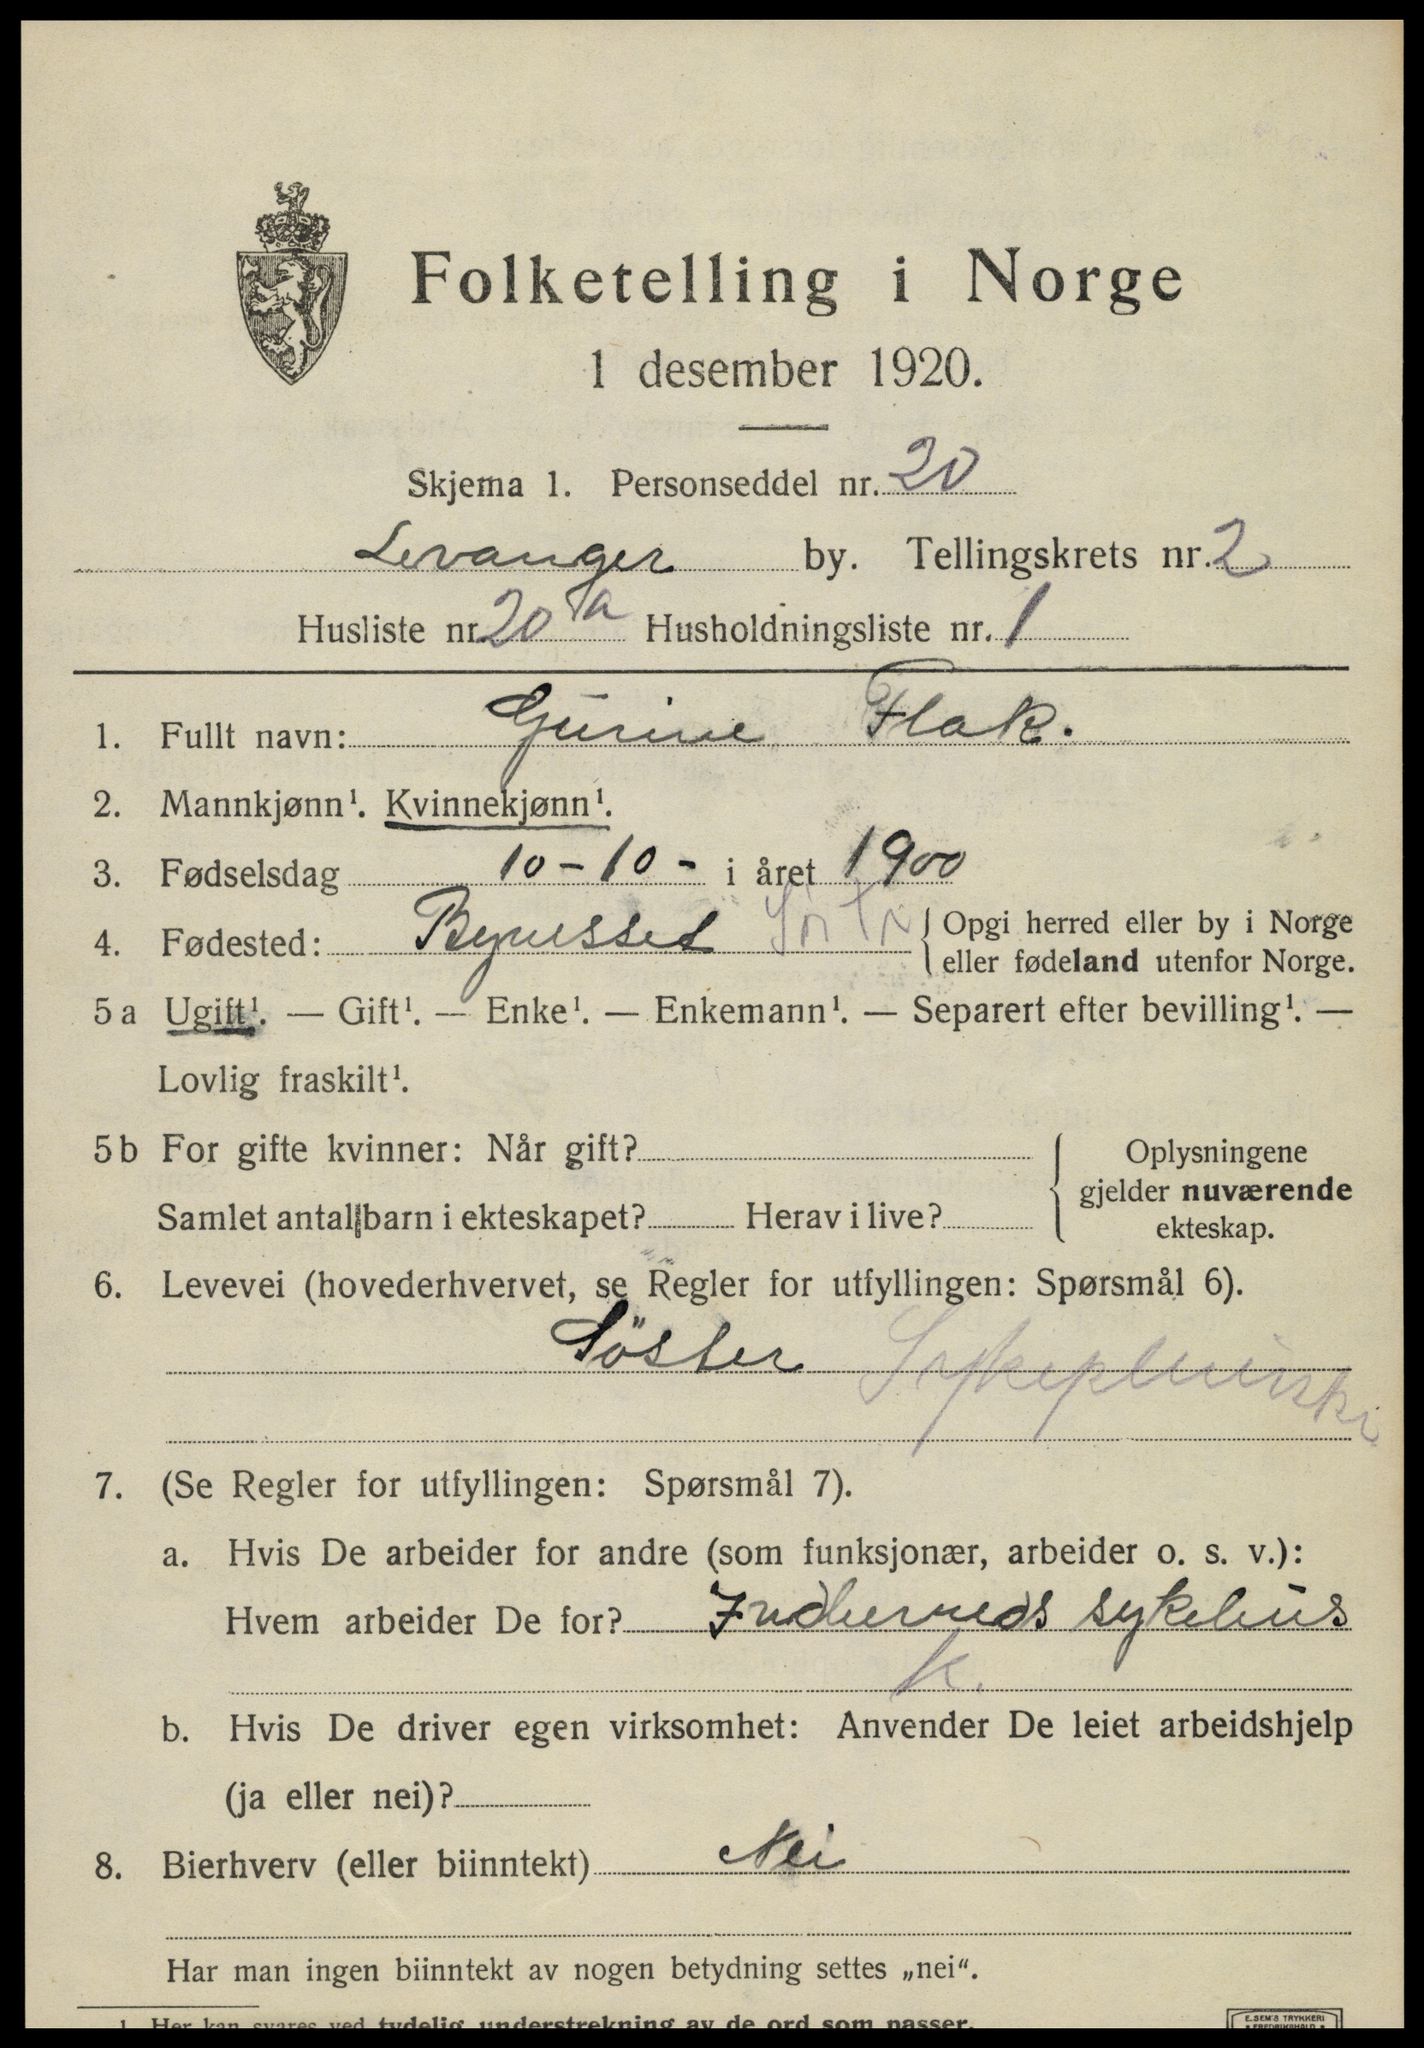 Folketelling i Norge
1 desember 1920.
Skjema 1. Personseddel nr. 20
Levanger by. Tellingskrets nr. 2
Husliste nr. 20 a Husholdningsliste nr. 1
1. Fullt navn: Gurine Flak.
2. Mannkjønn¹. Kvinnekjønn¹.
3. Fødselsdag 10-10- i året 1900
4. Fødested: Bynesset { Opgi herred eller by i Norge
eller fødeland utenfor Norge.
5 a Ugift¹. — Gift¹. — Enke¹. — Enkemann¹. — Separert efter bevilling¹. —
Lovlig fraskilt¹.
5 b For gifte kvinner: Når gift? { Oplysningene
gjelder nuværende
Samlet antall barn i ekteskapet? Herav i live?
ekteskap.
6. Levevei (hovederhvervet, se Regler for utfyllingen: Spørsmål 6).
Söster
7. (Se Regler for utfyllingen: Spørsmål 7).
a. Hvis De arbeider for andre (som funksjonær, arbeider o. s. v.):
Hvem arbeider De for? Indherreds sykehus
K.
b. Hvis De driver egen virksomhet: Anvender De leiet arbeidshjelp
(ja eller nei)?
8. Bierhverv (eller biinntekt) Nei
Har man ingen biinntekt av nogen betydning settes „nei“.
1 Her kan svares ved tydelig understrekning av de ord som passer.
E. SEM'S TRYKKERI
FREDRIKSHALD